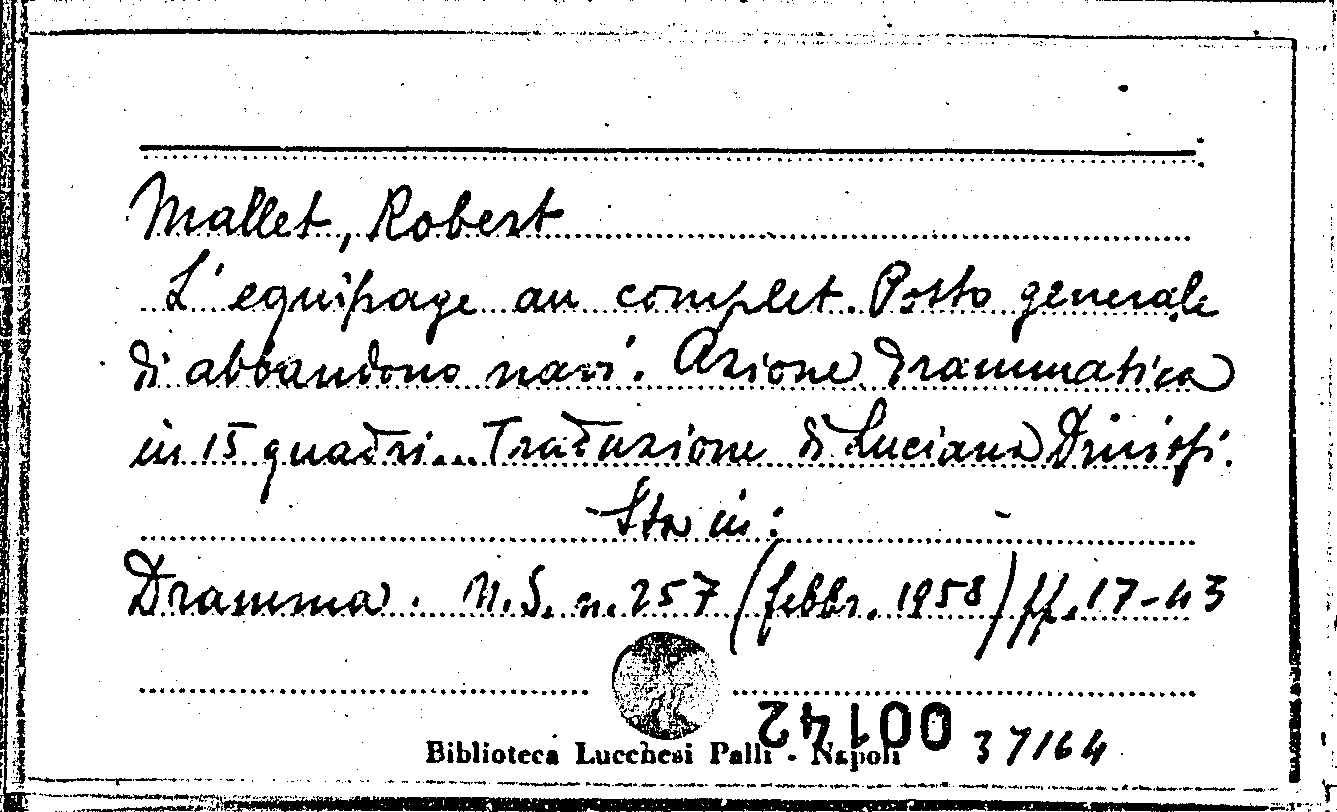 Mallet, Robert
L'equipage au complet. Posto generale
di abbandono navi. Azione drammatica
in 15 quadri... Traduzione di Luciana
Sta in:
Dramma. N.S. n. 257 (febbr. 1958) ff. 17-43
00142
Biblioteca Lucchesi Palli - Napoli 37164